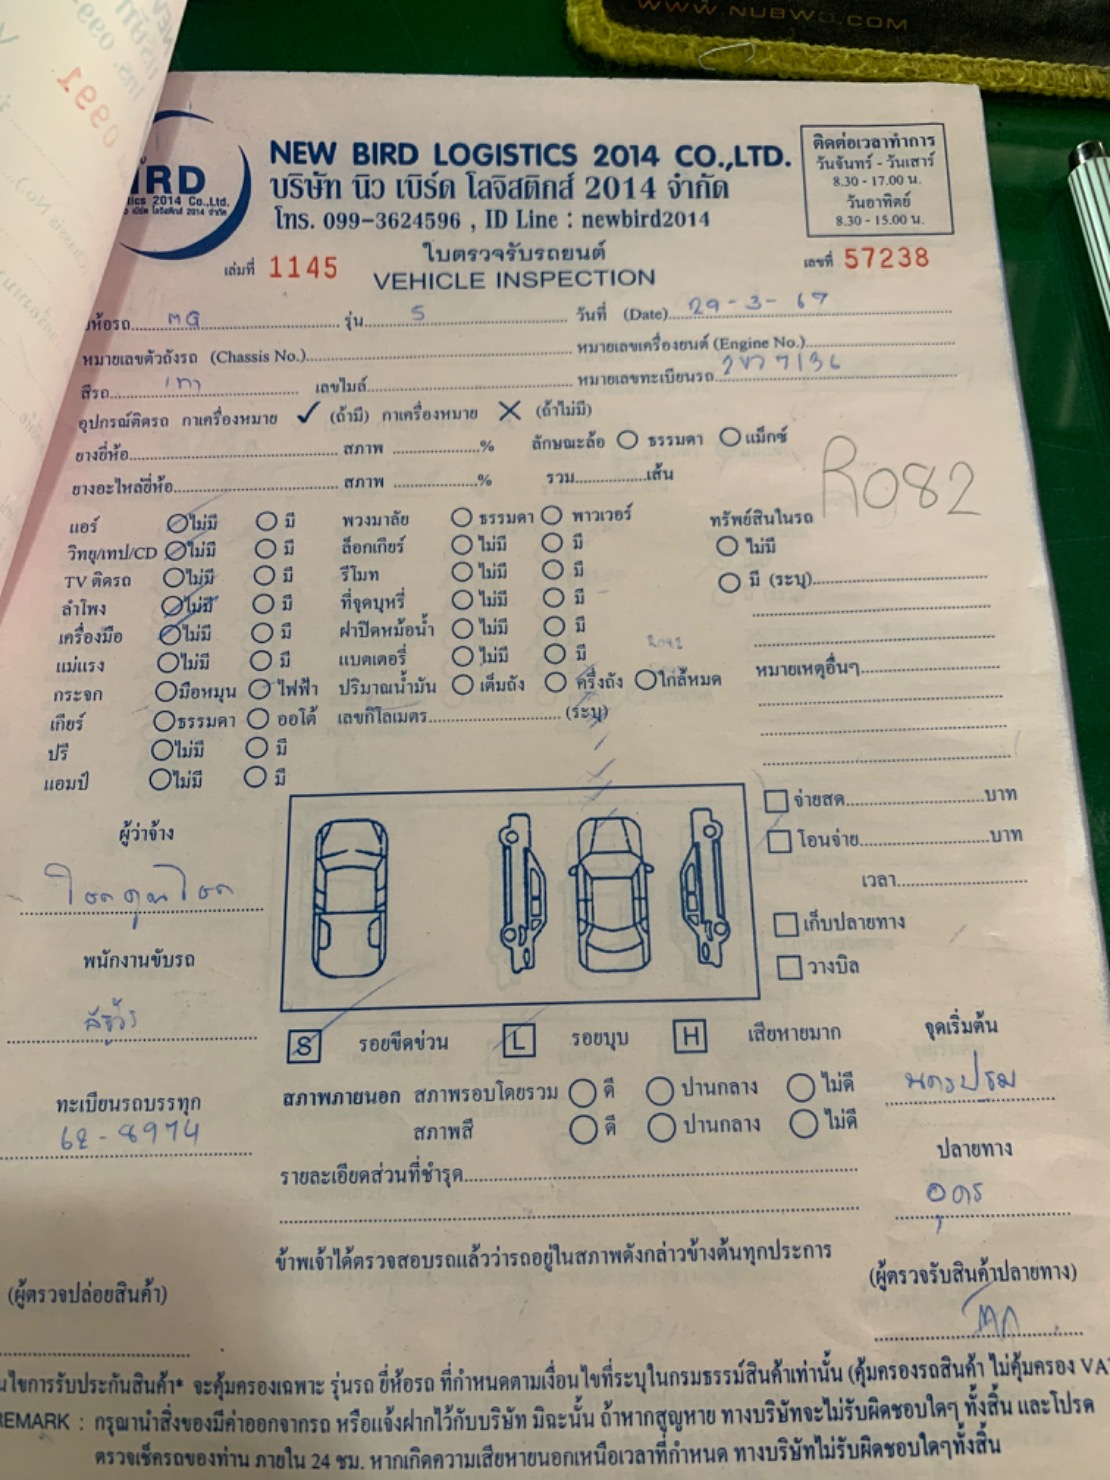 WWW.NUBWO.COM
0991
NEW BIRD LOGISTICS 2014 CO.,LTD.
บริษัท นิว เบิร์ด โลจิสติกส์ 2014 จำกัด
โทร. 099-3624596 , ID Line : newbird2014
ติดต่อเวลาทำการ
วันจันทร์ - วันเสาร์
8.30 - 17.00 น.
วันอาทิตย์
8.30 - 15.00 น.
ใบตรวจรับรถยนต์
เล่มที่ 1145 VEHICLE INSPECTION เลขที่ 57238
ห้อรถ MG รุ่น 5 วันที่ (Date) 29-3-67
หมายเลขตัวถังรถ (Chassis No.) หมายเลขเครื่องยนต์ (Engine No.)
สีรถ เทา เลขไมล์ หมายเลขทะเบียนรถ 7136
อุปกรณ์ติดรถ กาเครื่องหมาย ✓ (ถ้ามี) กาเครื่องหมาย X (ถ้าไม่มี)
ยางยี่ห้อ สภาพ % ลักษณะล้อ ธรรมดา แม็กซ์
ยางอะไหล่ยี่ห้อ สภาพ % รวม เส้น
R082
แอร์ ไม่มี มี พวงมาลัย ธรรมดา พาวเวอร์ ทรัพย์สินในรถ
วิทยุ/เทป/CD ไม่มี มี ล็อกเกียร์ ไม่มี มี ไม่มี
TV ติดรถ ไม่มี มี รีโมท ไม่มี มี มี (ระบุ)
ลำโพง ไม่มี มี ที่จุดบุหรี่ ไม่มี มี
เครื่องมือ ไม่มี มี ฝาปิดหม้อน้ำ ไม่มี มี
แม่แรง ไม่มี มี แบตเตอรี่ ไม่มี มี หมายเหตุอื่นๆ
กระจก มือหมุน ไฟฟ้า ปริมาณน้ำมัน เต็มถัง ครึ่งถัง ใกล้หมด
เกียร์ ธรรมดา ออโต้ เลขกิโลเมตร (ระบุ)
ปรี ไม่มี มี
แอมป์ ไม่มี มี
จ่ายสด บาท
โอนจ่าย บาท
เวลา
เก็บปลายทาง
วางบิล
ผู้ว่าจ้าง
โชคคูณโชค
พนักงานขับรถ
S รอยขีดข่วน L รอยบุบ H เสียหายมาก
จุดเริ่มต้น
นครปฐม
สภาพภายนอก สภาพรอบโดยรวม ดี ปานกลาง ไม่ดี
สภาพสี ดี ปานกลาง ไม่ดี
ทะเบียนรถบรรทุก
62-8974
ปลายทาง
อุดร
รายละเอียดส่วนที่ชำรุด
ข้าพเจ้าได้ตรวจสอบรถแล้วว่ารถอยู่ในสภาพดังกล่าวข้างต้นทุกประการ
(ผู้ตรวจปล่อยสินค้า) (ผู้ตรวจรับสินค้าปลายทาง)
นไขการรับประกันสินค้า* จะคุ้มครองเฉพาะ รุ่นรถ ยี่ห้อรถ ที่กำหนดตามเงื่อนไขที่ระบุในกรมธรรม์สินค้าเท่านั้น (คุ้มครองรถสินค้า ไม่คุ้มครอง VA
REMARK : กรุณานำสิ่งของมีค่าออกจากรถ หรือแจ้งฝากไว้กับบริษัท มิฉะนั้น ถ้าหากสูญหาย ทางบริษัทจะไม่รับผิดชอบใดๆ ทั้งสิ้น และโปรด
ตรวจเช็ครถของท่าน ภายใน 24 ชม. หากเกิดความเสียหายนอกเหนือเวลาที่กำหนด ทางบริษัทไม่รับผิดชอบใดๆทั้งสิ้น